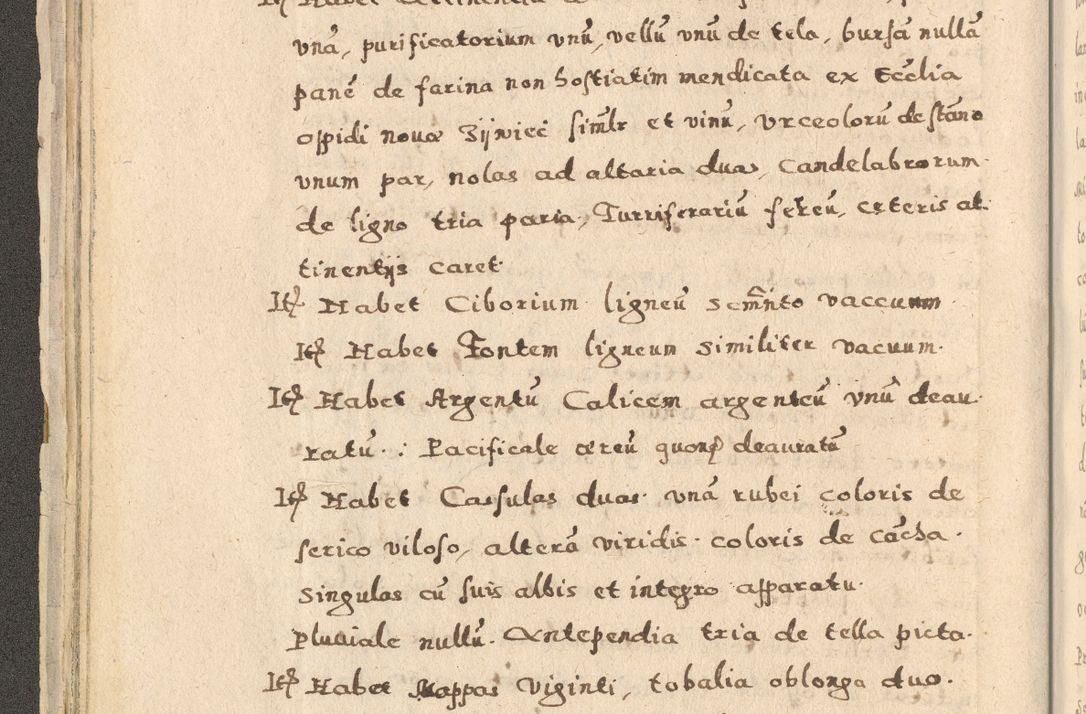 vnā, purificatorium vnū, vellū vnū de tela, bursā nullā
panē de farina non hostiatim mendicata ex Eccl̄ia
oppidi novæ Zijwiec siml̄r et vinū, vrceolorū de stāno
vnum par, nolas ad altaria duas, Candelabrorum
de ligno tria paria, Turriferariū ferreū, cęteris at
tinentijs caret
Itē Habet Ciborium ligneū Scm̄nto vaccuum
Itē Habet Fontem ligneum similiter vacuum.
Itē Habet Argentū Calicem argenteū vnū deau
ratū. : Pacificale æreū quoq̄ deauratū
Itē Habet Cassulas duas. vnā rubei coloris de
serico viloso, alterā viridis. coloris de cācha.
Singulas cū suis albis et integro apparatu.
Pluuiale nullū. Antependia tria de tella picta.
Itē Habet Mappas Viginti, tobalia oblonga duo.